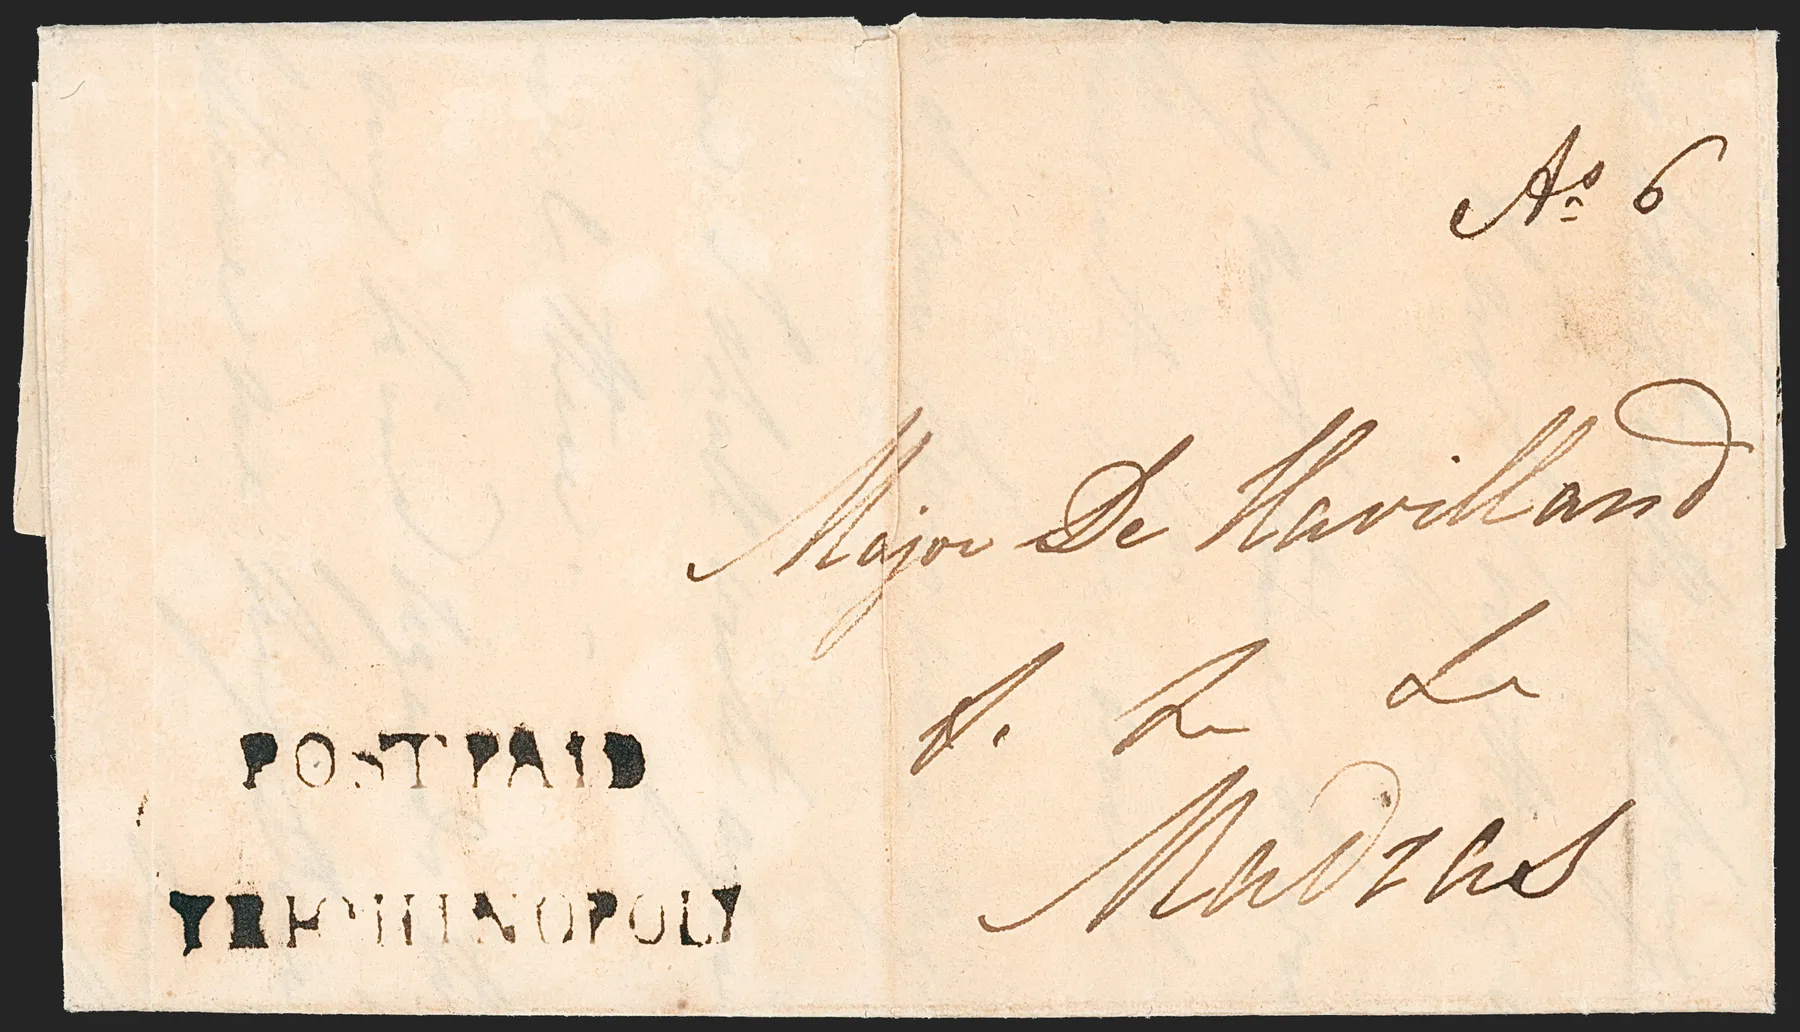 As 6
Major De Havilland
Madras
POST PAID
TRICHINOPOLY